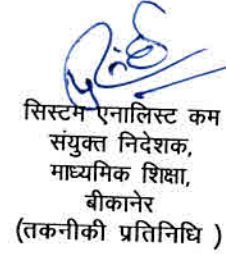 सिस्टम एनालिस्ट कम
संयुक्त निदेशक,
माध्यमिक शिक्षा,
बीकानेर
(तकनीकी प्रतिनिधि )